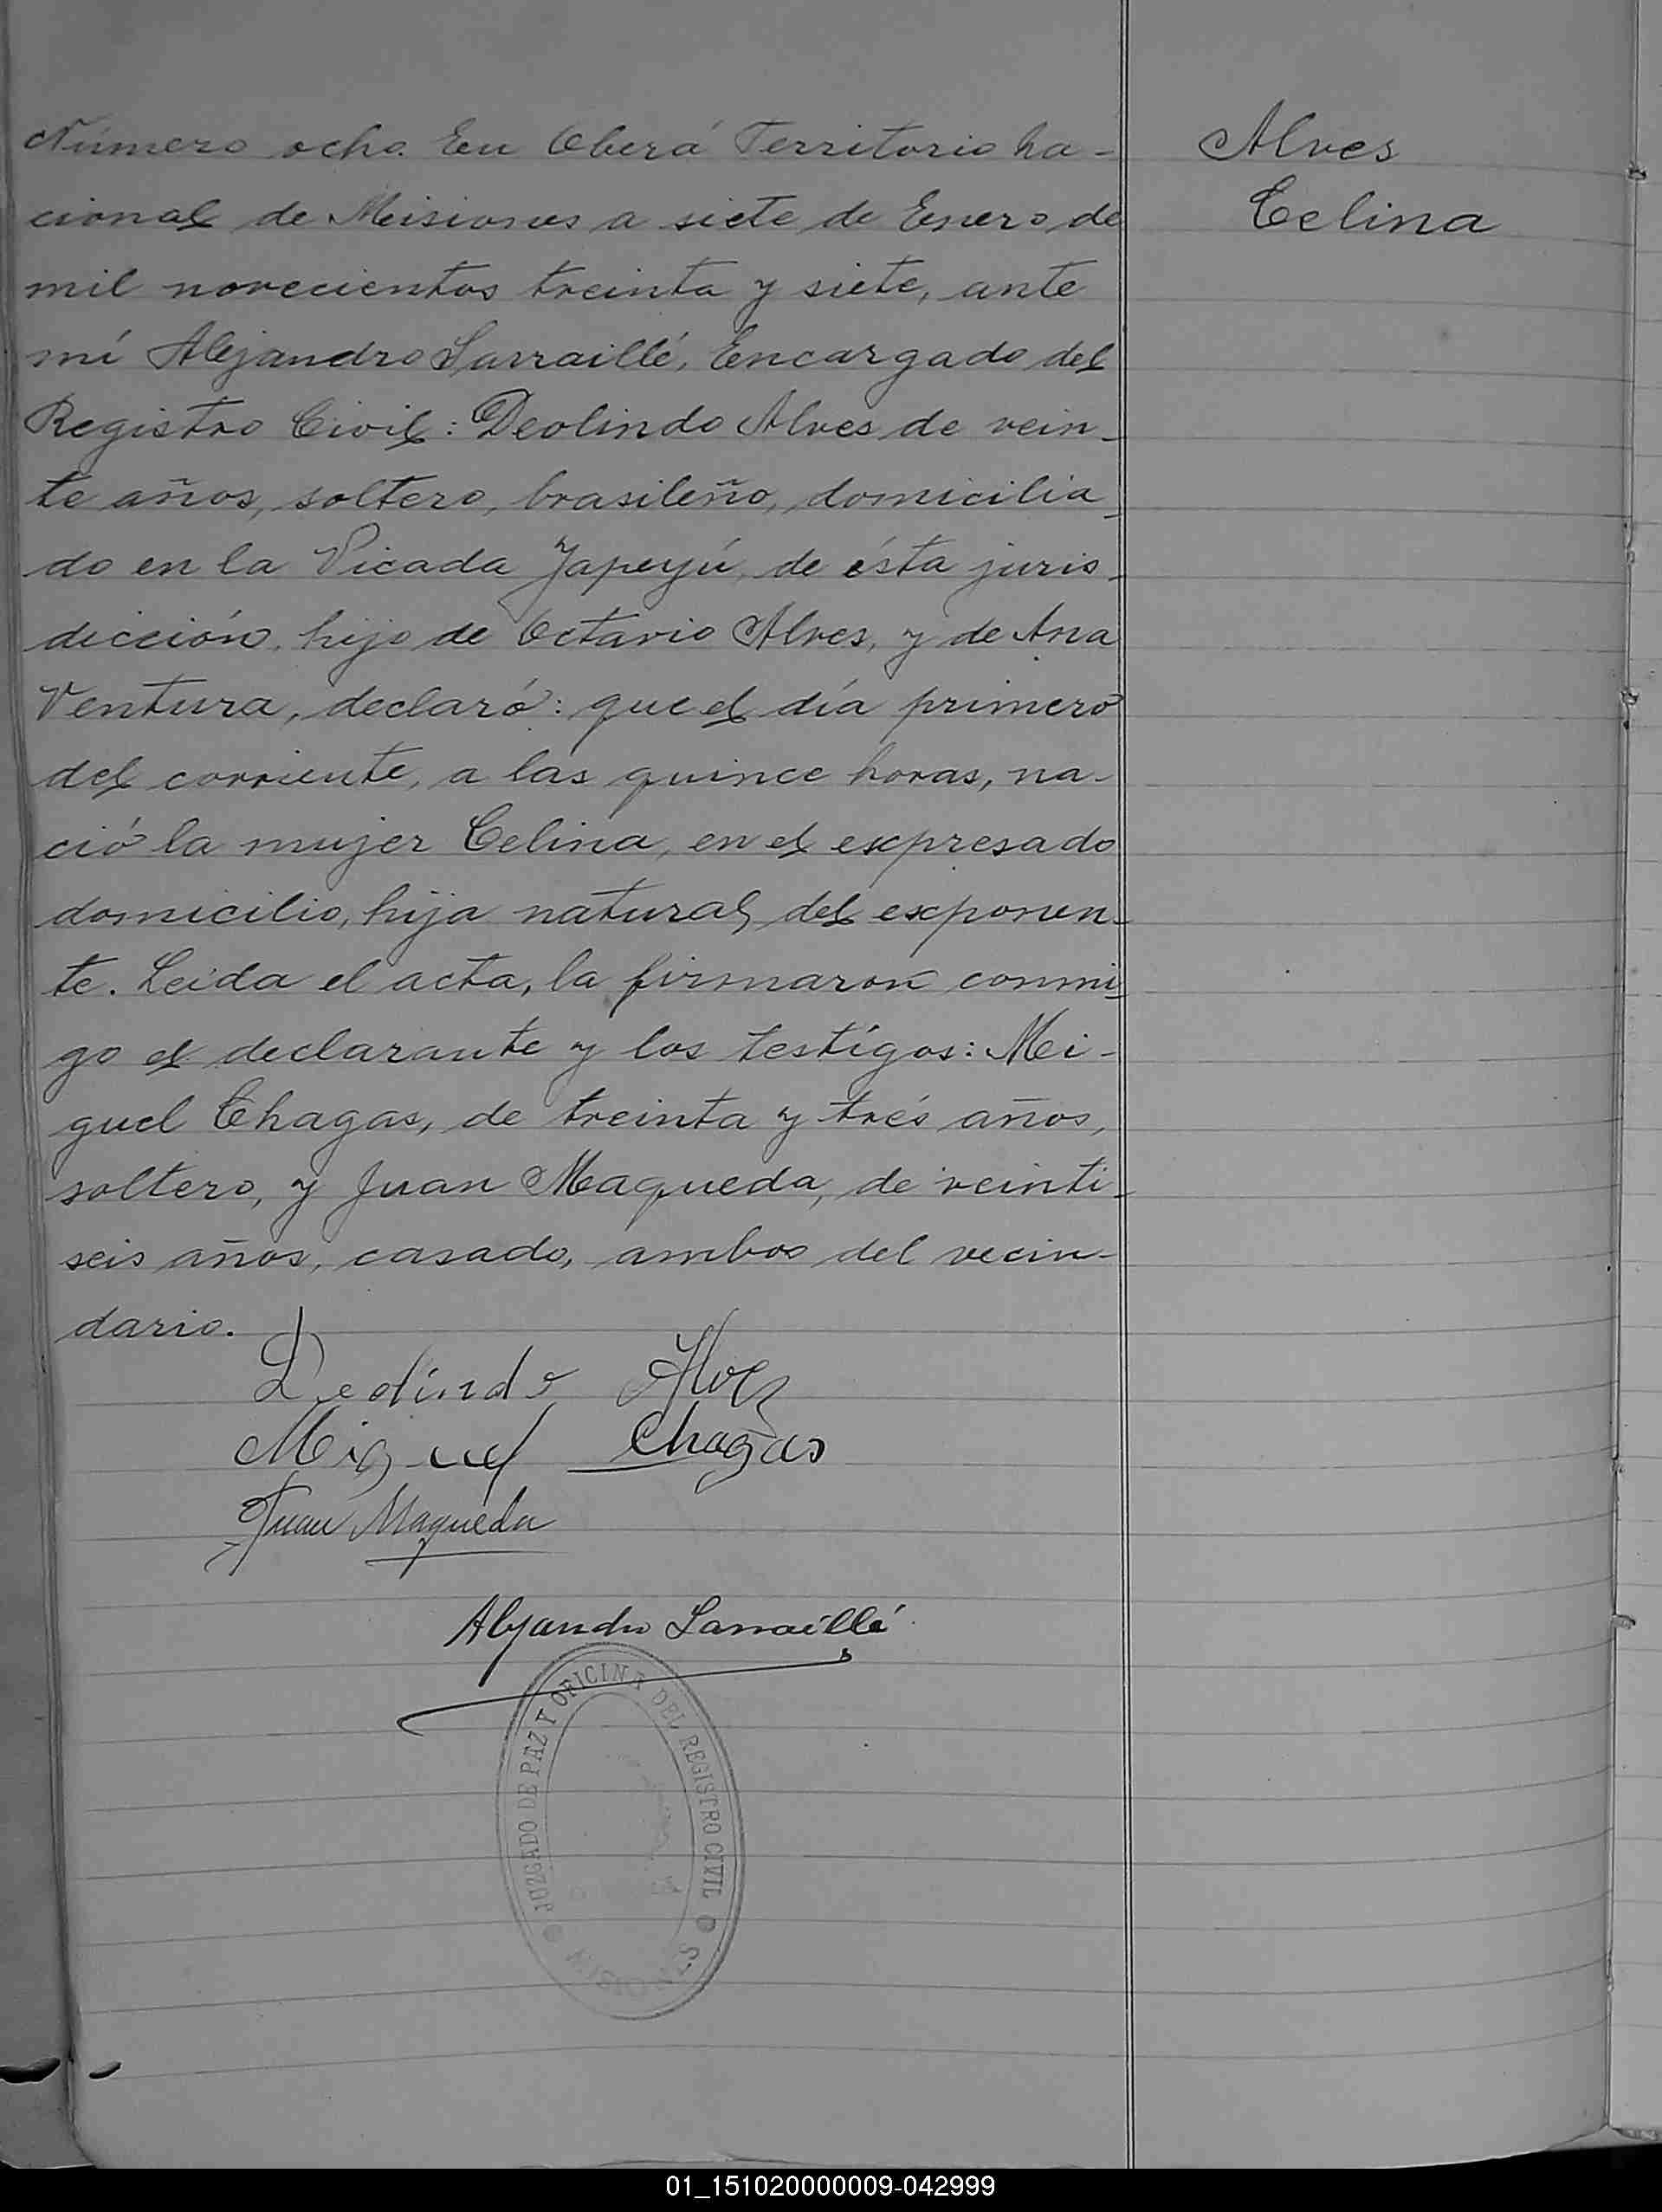 Número ocho. En Oberá Territorio na-
cional de Misiones a siete de Enero de
mil novecientos treinta y siete, ante
mí Alejandro Sarraillé, Encargado del
Registro Civil: Deolindo Alves de vein-
te años, soltero, brasileño, domicilia-
do en la Picada Yapeyú, de ésta juris-
dicción, hijo de Octavio Alves, y de Ana
Ventura, declaró: que el día primero
del corriente, a las quince horas, na-
ció la mujer Celina, en el expresado
domicilio, hija natural del exponen-
te. Leída el acta, la firmaron conmi-
go el declarante y los testigos: Mi-
guel Chagas, de treinta y trés años,
soltero, y Juan Maqueda, de veinti-
seis años, casado, ambos del vecin-
dario.
Alves
Celina
Deolindo Alves
Miguel Chagas
Juan Maqueda
Alejandro Sarraillé
JUZGADO DE PAZ Y OFICINA DEL REGISTRO CIVIL
MISIONES
01_151020000009-042999